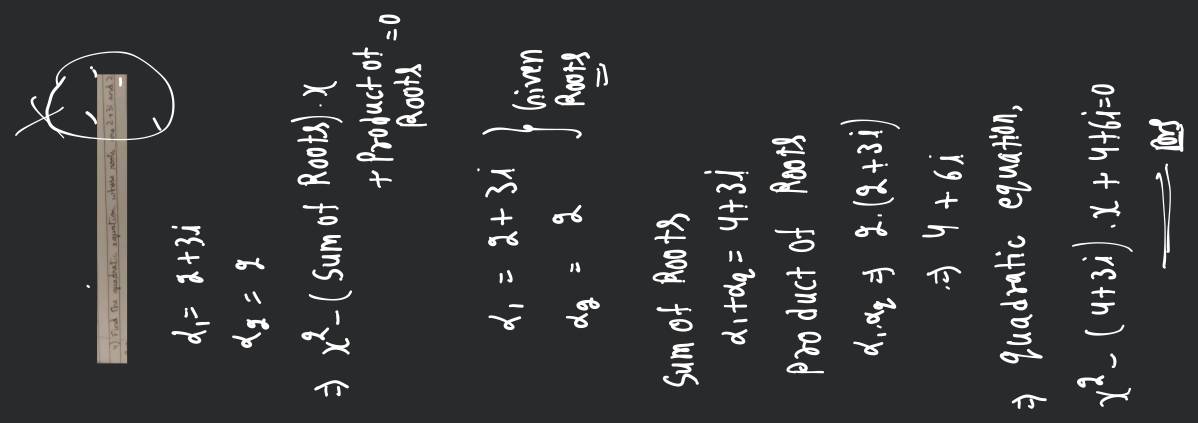 Find the quadratic equation whose roots are 2+3i and 2
α₁ = 2+3i
α₂ = 2
⇒ x² - (Sum of Roots).x
+ Product of Roots = 0
α₁ = 2 + 3i
α₂ = 2
} Given Roots
Sum of Roots
α₁+α₂ = 4+3i
Product of Roots
α₁.α₂ ⇒ 2.(2+3i)
⇒ 4 + 6i
⇒ quadratic equation,
x² - (4+3i).x + 4+6i=0